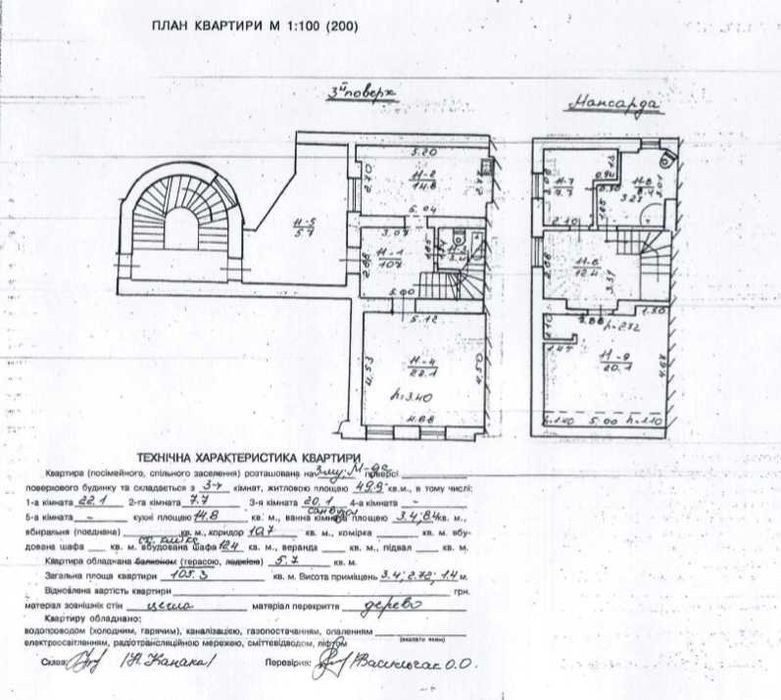 ПЛАН КВАРТИРИ М 1:100 (200)
3й поверх
Мансарда
5.20
2.70
11-2
14.8
2.77
5.04
11-5
5.7
3.07
11-1
10.7
2.88
1.65
5.00
5.12
4.53
11-4
22.1
4.50
h=3.40
4.88
11-7
7.7
0.90
11-8
8.4
3.27
2.10
1.65
2.88
11-6
12.4
3.51
3.88
1.50
h=2.72
1.10
1.47
11-9
20.1
4.67
h=1.40
5.00
h=1.10
ТЕХНІЧНА ХАРАКТЕРИСТИКА КВАРТИРИ
Квартира (посімейного, спільного заселення) розташована на 3му; М-да поверсі
поверхового будинку та складається з 3-х кімнат, житловою площею 49.9 кв.м., в тому числі:
1-а кімната 22.1 2-га кімната 7.7 3-я кімната 20.1 4-а кімната -
5-а кімната - кухні площею 14.8 кв. м., ванна кімната площею 3.4; 8.4 кв. м.,
санвузол
вбиральня (поєднана) кв. м., коридор 10.7 кв. м., комірка кв. м. вбу-
дована шафа кв. м. вбудована шафа 12.4 кв. м., веранда кв. м., підвал кв. м.
Квартира обладнана балконом (терасою, лоджією) 5.7 кв. м.
Загальна площа квартири 105.3 кв. м. Висота приміщень 3.4; 2.72; 1.4 м.
Відновлена вартість квартири грн.
матеріал зовнішніх стін цегла матеріал перекриття дерево
Квартиру обладнано:
водопроводом (холодним, гарячим), каналізацією, газопостачанням, опаленням
електроосвітленням, радіотрансляційною мережею, сміттєвідводом, ліфтом
(вказати яким)
Склав: /Н. Канака/ Перевірив: Васильчак О.О.